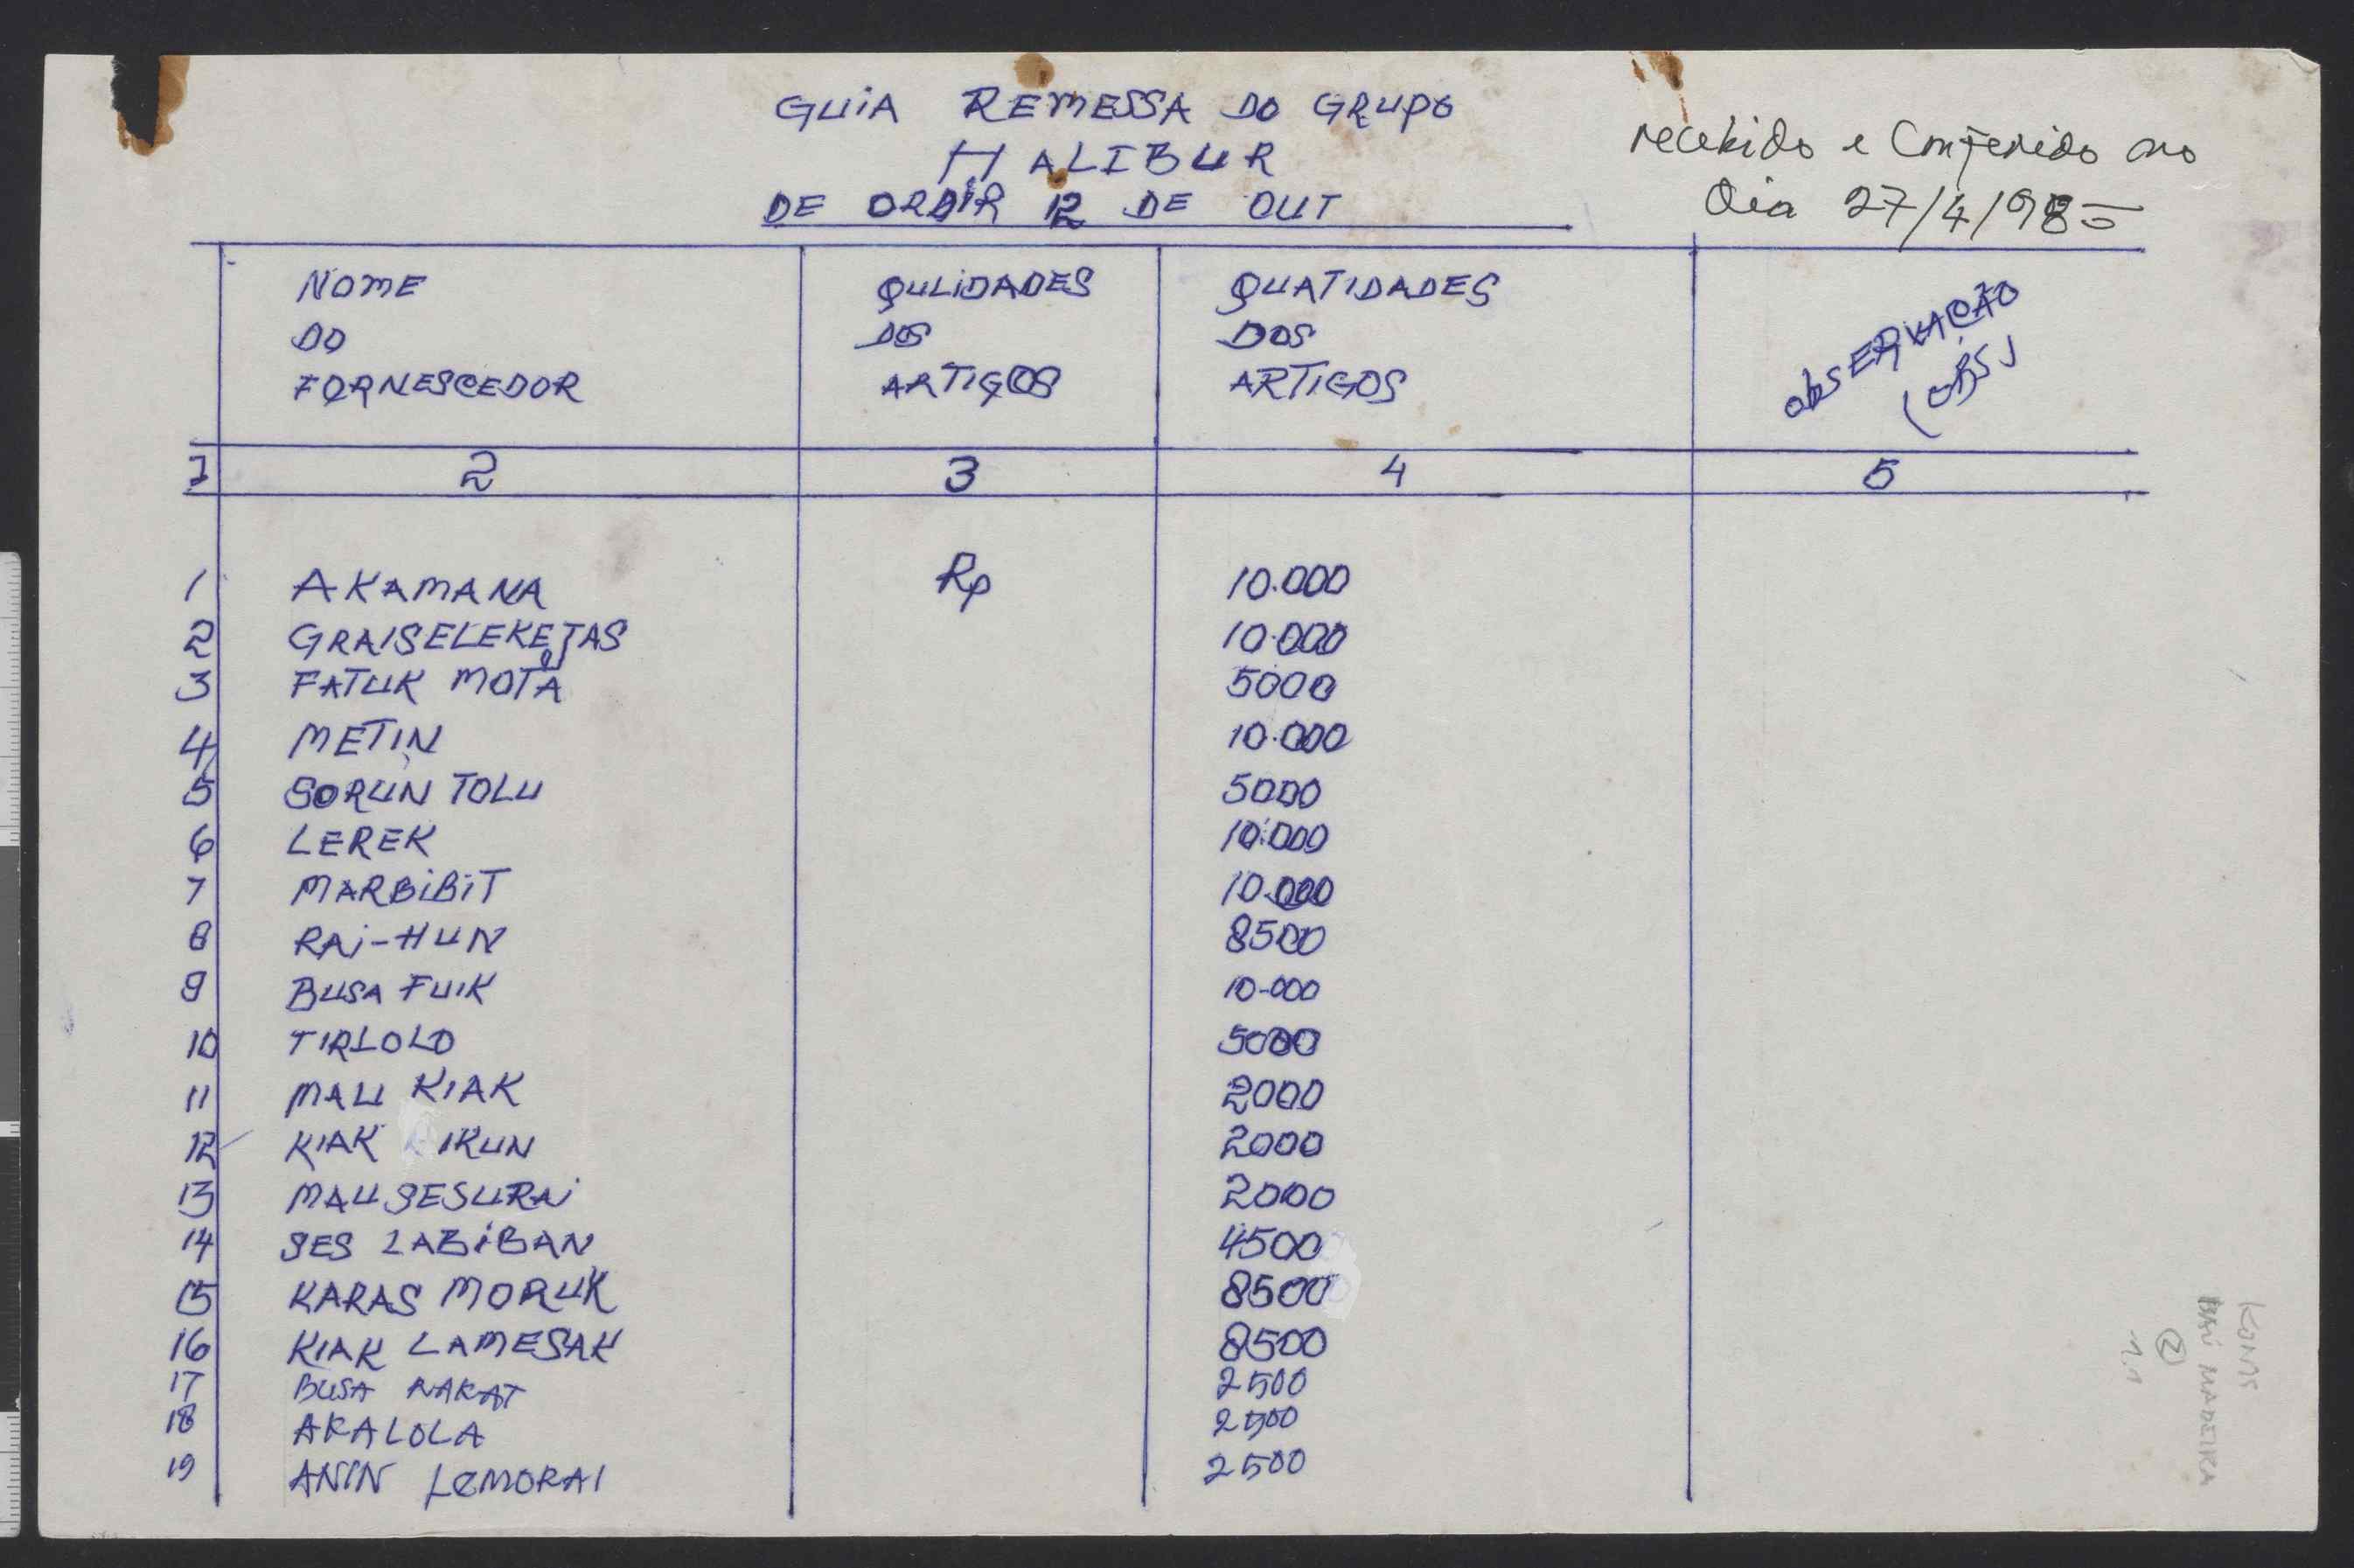 GUIA REMESSA DO GRUPO
HALIBUR
DE ORDIR 12 DE OUT
recebido e Conferido ao
Dia 27/4/1985
NOME
DO
FORNESCEDOR
QULIDADES
DOS
ARTIGOS
QUATIDADES
DOS
ARTIGOS
obSERVAÇÃO
(OBS)
1 2 3 4 5
1 AKAMANA Rp 10.000
2 GRAISELEKEJAS 10.000
3 FATUK MOTA 5000
4 METIN 10.000
5 SORUN TOLU 5000
6 LEREK 10.000
7 MARBIBIT 10.000
8 RAi-HUN 8500
9 BUSA FUIK 10-000
10 TIRLOLO 5000
11 MAU KIAK 2000
12 KIAK IKUN 2000
13 MAUSESURAi 2000
14 SES LABiBAN 4500
15 KARAS MORUK 8500
16 KIAK LAMESAK 8500
17 BUSA NAKAT 2500
18 AKALOLA 2500
19 ANIN LEMORAI 2500
KOMS
MADEIRA
2